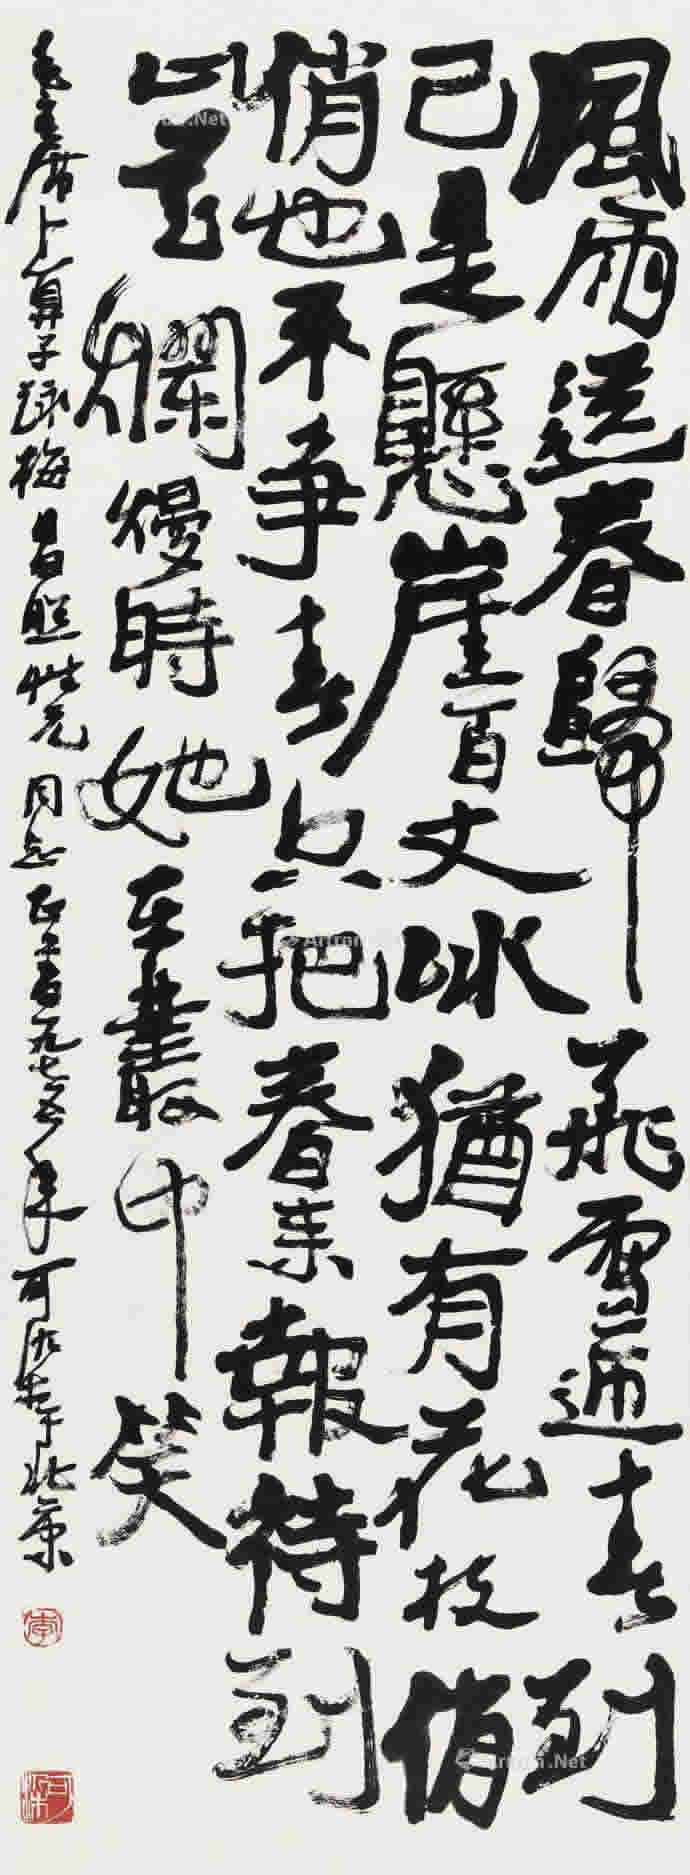 風雨送春歸飛雪迎春到
已是懸崖百丈冰猶有花枝俏
俏也不争春只把春來報待到
山花爛熳時她在叢中笑
毛主席卜算子詠梅 同志 一九七五年可染於北京
李
可染
Artron.Net
Artron.Net